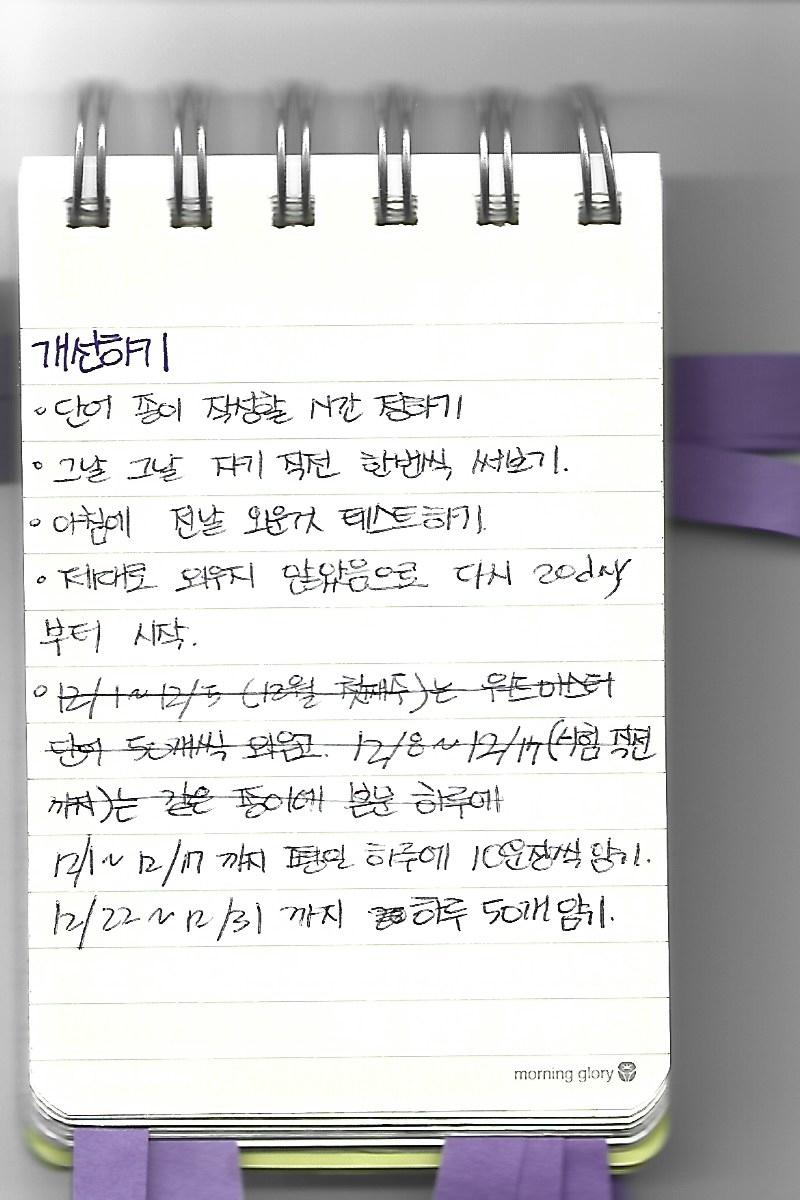 개선하기
◦ 단어 종이 작성할 시간 정하기
◦ 그날 그날 자기 직전 한번씩 써보기.
◦ 아침에 전날 외운것 테스트하기.
◦ 제대로 외우지 않았음으로 다시 20day
부터 시작.
◦ 12/1~12/5 (12월 첫째주)는 워드마스터
단어 50개씩 외우고. 12/8~12/17(시험 직전
까지)는 같은 종이에 본문 하루에
12/1~ 12/17 까지 평일 하루에 10문장씩 암기.
12/22~12/31 까지 하루 50개 암기.
morning glory